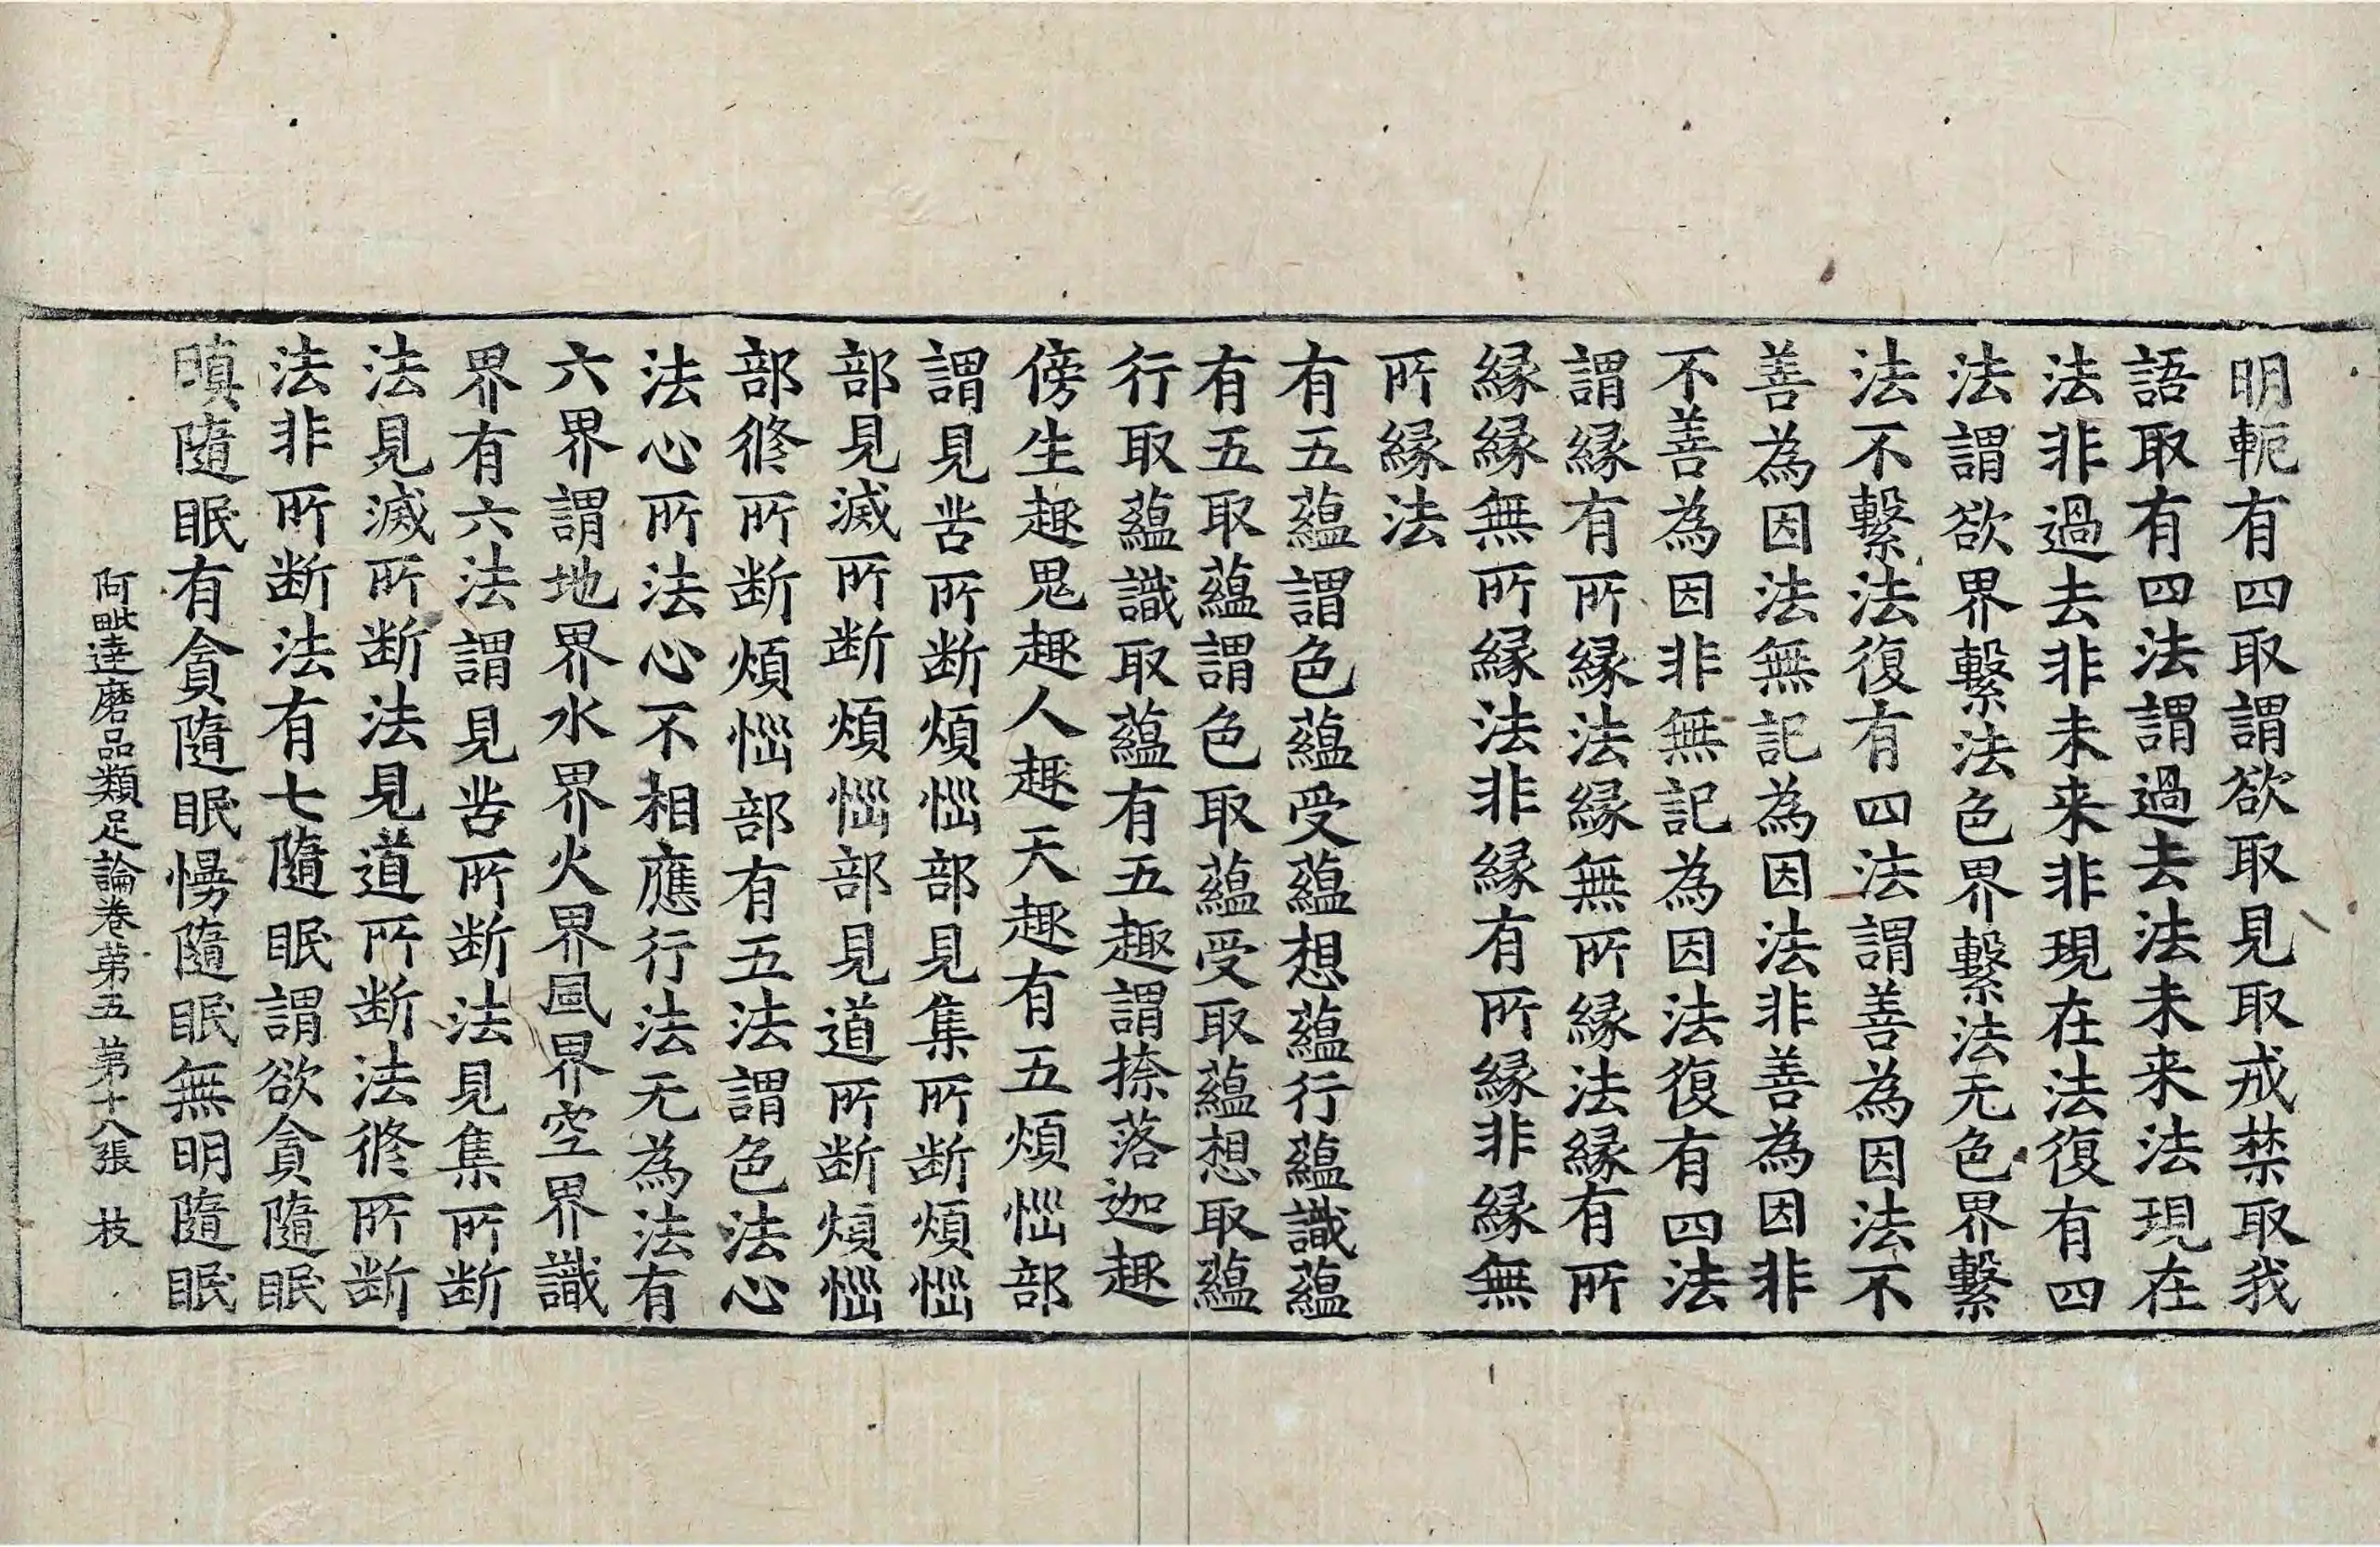 明軛有四取謂欲取見取戒禁取我
語取有四法謂過去法未来法現在
法非過去非未来非現在法復有四
法謂欲界繫法色界繫法无色界繫
法不繫法復有四法謂善為因法不
善為因法無記為因法非善為因非
不善為因非無記為因法復有四法
謂縁有所縁法縁無所縁法縁有所
縁縁無所縁法非縁有所縁非縁無
所縁法
有五蘊謂色蘊受蘊想蘊行蘊識蘊
有五取蘊謂色取蘊受取蘊想取蘊
行取蘊識取蘊有五趣謂捺落迦趣
傍生趣鬼趣人趣天趣有五煩惱部
謂見苦所断煩惱部見集所断煩惱
部見滅所断煩惱部見道所断煩惱
部修所断煩惱部有五法謂色法心
法心所法心不相應行法无為法有
六界謂地界水界火界風界空界識
界有六法謂見苦所断法見集所断
法見滅所断法見道所断法修所断
法非所断法有七隨眠謂欲貪隨眠
瞋隨眠有貪隨眠慢隨眠無明隨眠
阿毗達磨品類足論卷第五 第十八張 枝